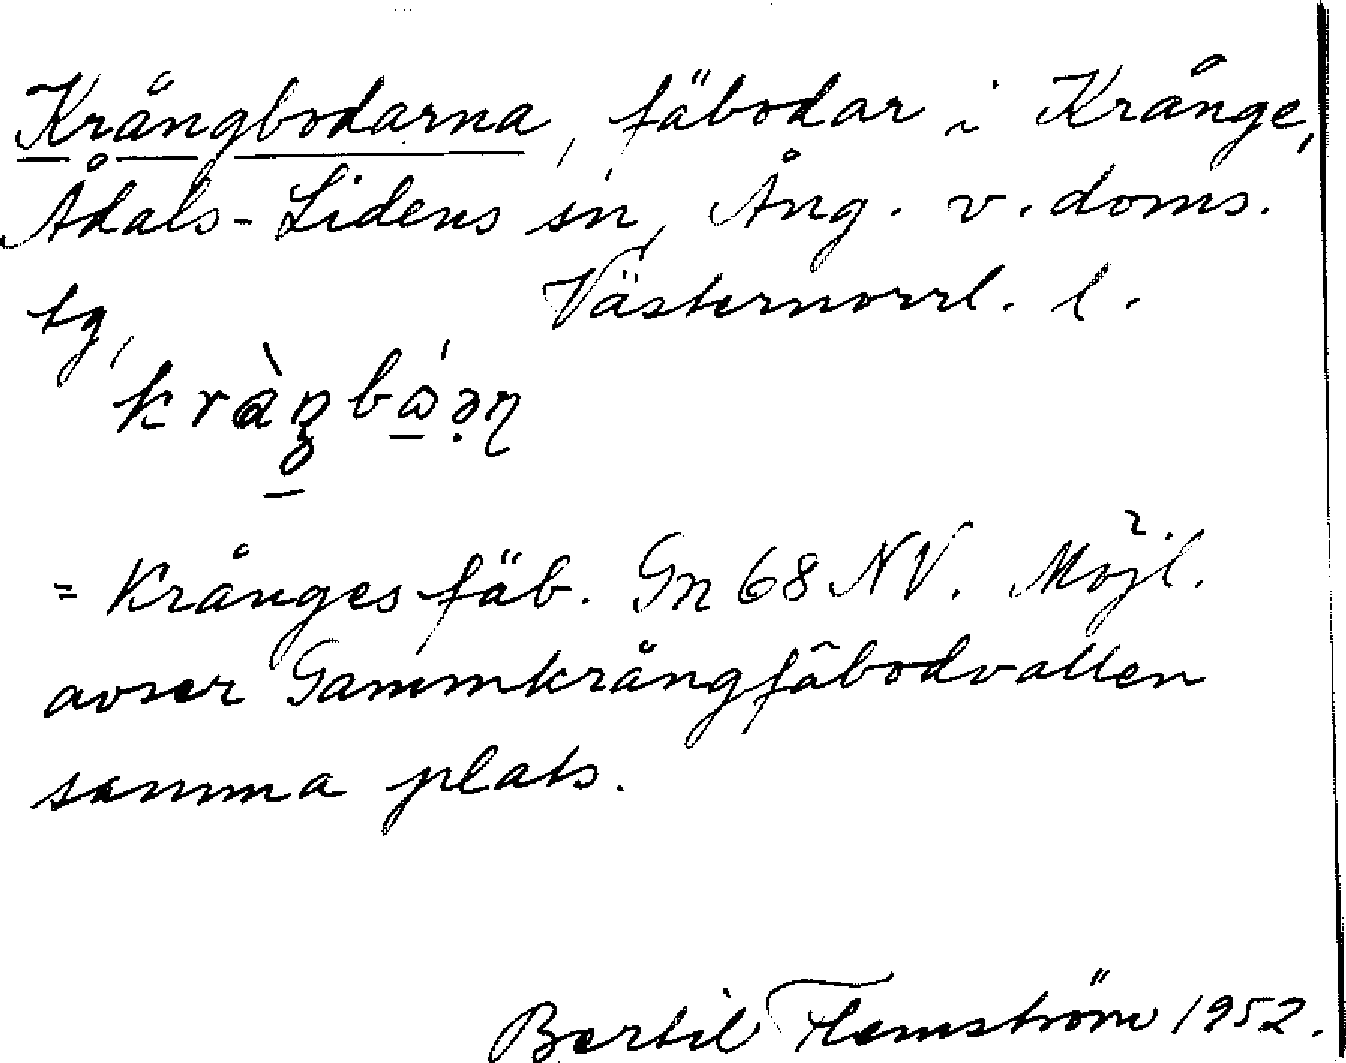 Krångbodarna, fäbodar i Krånge,
Ådals-Lidens sn, Ång. v. doms.
tg, Västernorrl. l.
= Krånges fäb. Gn 68 NV. Möjl.
avser Gammkrångfäbodvallen
samma plats.
Bertil Flemström 1952.